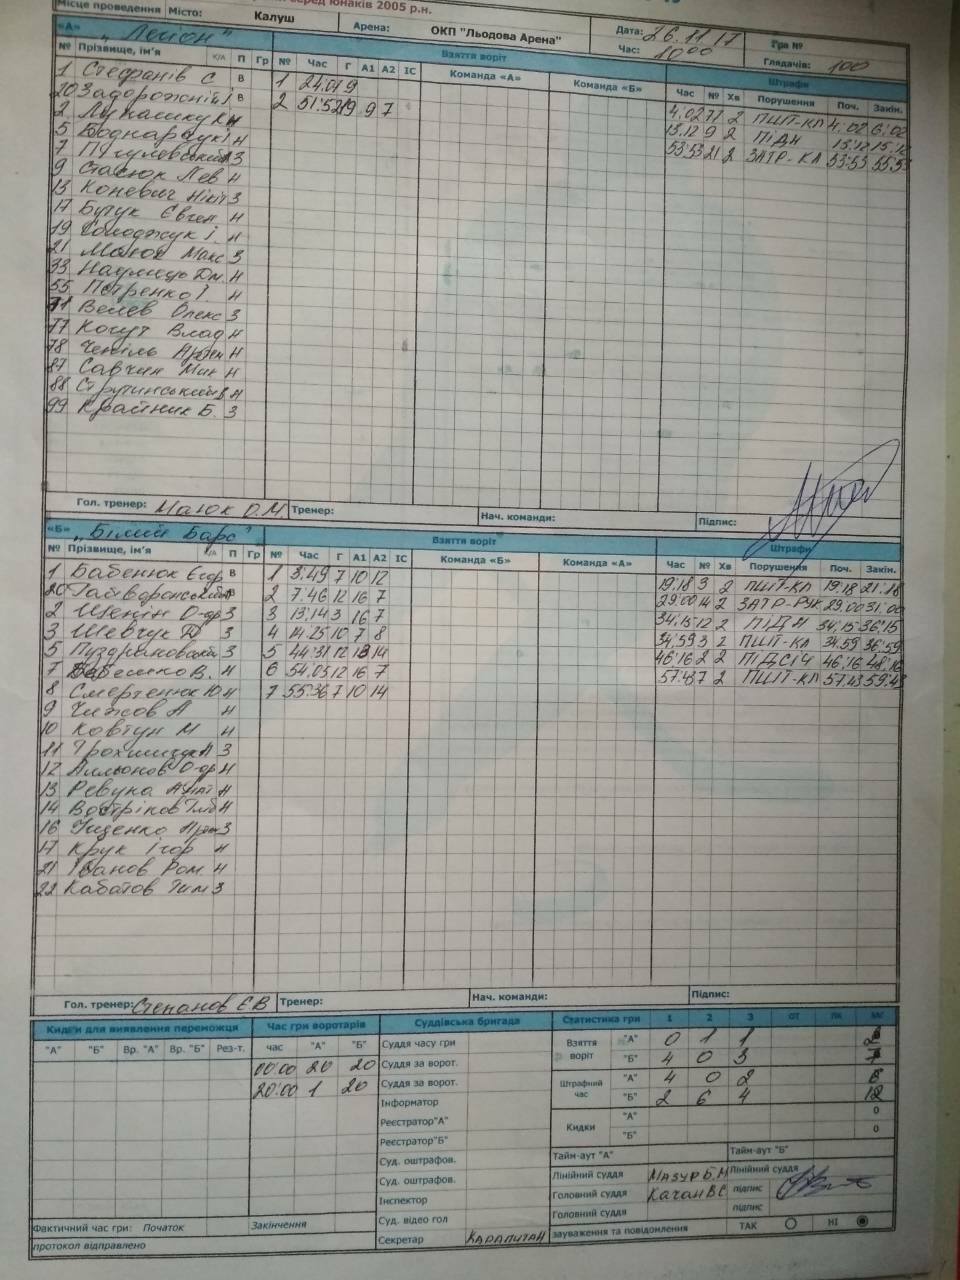 серед юнаків 2005 р.н.
Місце проведення Місто: Калуш Арена: ОКП "Льодова Арена" Дата: 26.11.17 Гра №
Час: 10 00 Глядачів: 100
«А» Взяття воріт Штрафи
№ Прізвище, ім'я К/А П Гр № Час Г А1 А2 ІС Команда «А» Команда «Б» Час № Хв Порушення Поч. Закін.
1 Стефанів С В 1 24:01 9
20 Задорожній В 2 51:52 19 9 7 4:02 71 2 ПШТ-КЛ 4:02 6:02
2 Н 13:12 9 2 ПІДН 13:12 15:12
5 Боднарчук Н 53:53 21 2 ЗАТР-КЛ 53:53 55:53
7 З
9 Стасюк Лев Н
13 Коневич Нікіт З
17 Бучук Євген Н
19 І. Н
21 Макс З
33 Дм. Н
55 Петренко І. Н
71 Велев Олекс З
77 Когут Влад Н
78 Н
87 Савчин Н
88 Струтинський Н
99 Крайник Б. З
Гол. тренер: Мацюк О.М Тренер: Нач. команди: Підпис:
«Б» "Білий Барс" Взяття воріт Штрафи
№ Прізвище, ім'я К/А П Гр № Час Г А1 А2 ІС Команда «Б» Команда «А» Час № Хв Порушення Поч. Закін.
1 Бабенюк Єгор В 1 3:49 7 10 12 19:18 3 2 ПШТ-КЛ 19:18 21:18
20 2 7:46 12 16 7 29:00 14 2 ЗАТР-РУК 29:00 31:00
2 О-др З 3 13:14 3 16 7 34:15 12 2 ПІДН 34:15 36:15
3 Шевчук Д З 4 14:25 10 7 8 34:59 3 2 ПШТ-КЛ 34:59 36:59
5 З 5 44:31 12 13 14 46:16 2 2 ПІДСІЧ 46:16 48:16
7 В. Н 6 54:05 12 16 7 57:43 7 2 ПШТ-КЛ 57:43 59:43
8 Смертенюк Ю Н 7 55:36 7 10 14
9 Чижов А Н
10 Ковтун М Н
11 Трохимчук З
12 О-др Н
13 Ревука Н
14 Востріков Гліб Н
16 З
17 Крук Ігор Н
21 Іванов Ром Н
22 Кабатов Тим З
Гол. тренер: Степанов Є В Тренер: Нач. команди: Підпис:
Кидки для виявлення переможця Час гри воротарів Суддівська бригада Статистика гри 1 2 3 ОТ ПК МГ
"А" "Б" Вр. "А" Вр. "Б" Рез-т. час "А" "Б" Суддя часу гри Взяття воріт "А" 0 1 1 2
00:00 20 20 Суддя за ворот. "Б" 4 0 3 7
20:00 1 20 Суддя за ворот. Штрафний час "А" 4 0 2 6
Інформатор "Б" 2 6 4 12
Реєстратор"А" Кидки "А" 0
Реєстратор"Б" "Б" 0
Суд. оштрафов. Тайм-аут "А" Тайм-аут "Б"
Суд. оштрафов. Лінійний суддя Мазур Б.М Лінійний суддя
Інспектор Головний суддя Качан В С підпис
Суд. відео гол Головний суддя підпис
Фактичний час гри: Початок Закінчення Секретар зауваження та повідомлення ТАК НІ
протокол відправлено